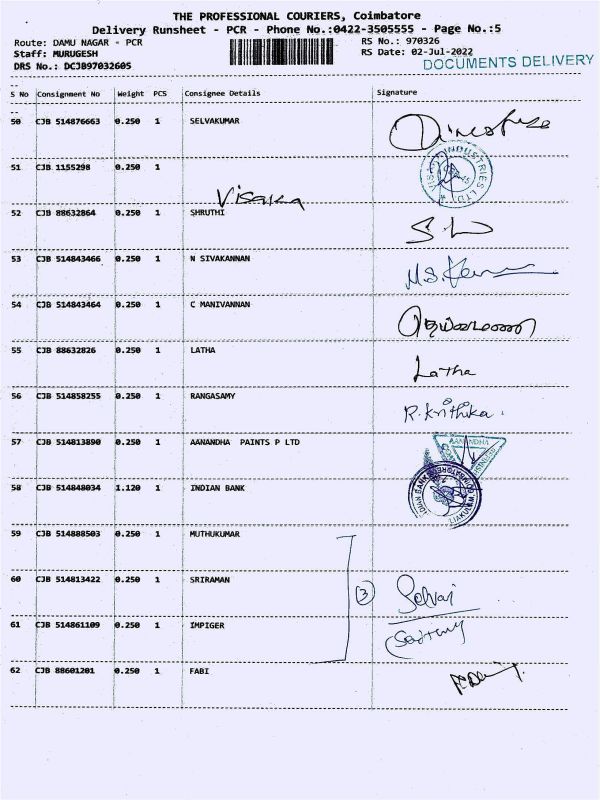 THE PROFESSIONAL COURIERS, Coimbatore
Delivery Runsheet - PCR - Phone No.:0422-3505555 - Page No.:5
Route: DAMU NAGAR - PCR
RS No.: 970326
Staff: MURUGESH
RS Date: 02-Jul-2022
DRS No.: DCJB97032605
DOCUMENTS DELIVERY
S No Consignment No Weight PCS Consignee Details Signature
50 CJB 514876663 0.250 1 SELVAKUMAR
51 CJB 1155298 0.250 1 Visaka
INDUSTRIES LTD
52 CJB 88632864 0.250 1 SHRUTHI
53 CJB 514843466 0.250 1 N SIVAKANNAN
54 CJB 514843464 0.250 1 C MANIVANNAN
55 CJB 88632826 0.250 1 LATHA Latha
56 CJB 514858255 0.250 1 RANGASAMY R.Krithika.
57 CJB 514813890 0.250 1 AANANDHA PAINTS P LTD
AANANDHA
58 CJB 514848034 1.120 1 INDIAN BANK
59 CJB 514888503 0.250 1 MUTHUKUMAR
60 CJB 514813422 0.250 1 SRIRAMAN 3 Selvai
61 CJB 514861109 0.250 1 IMPIGER
62 CJB 88601201 0.250 1 FABI